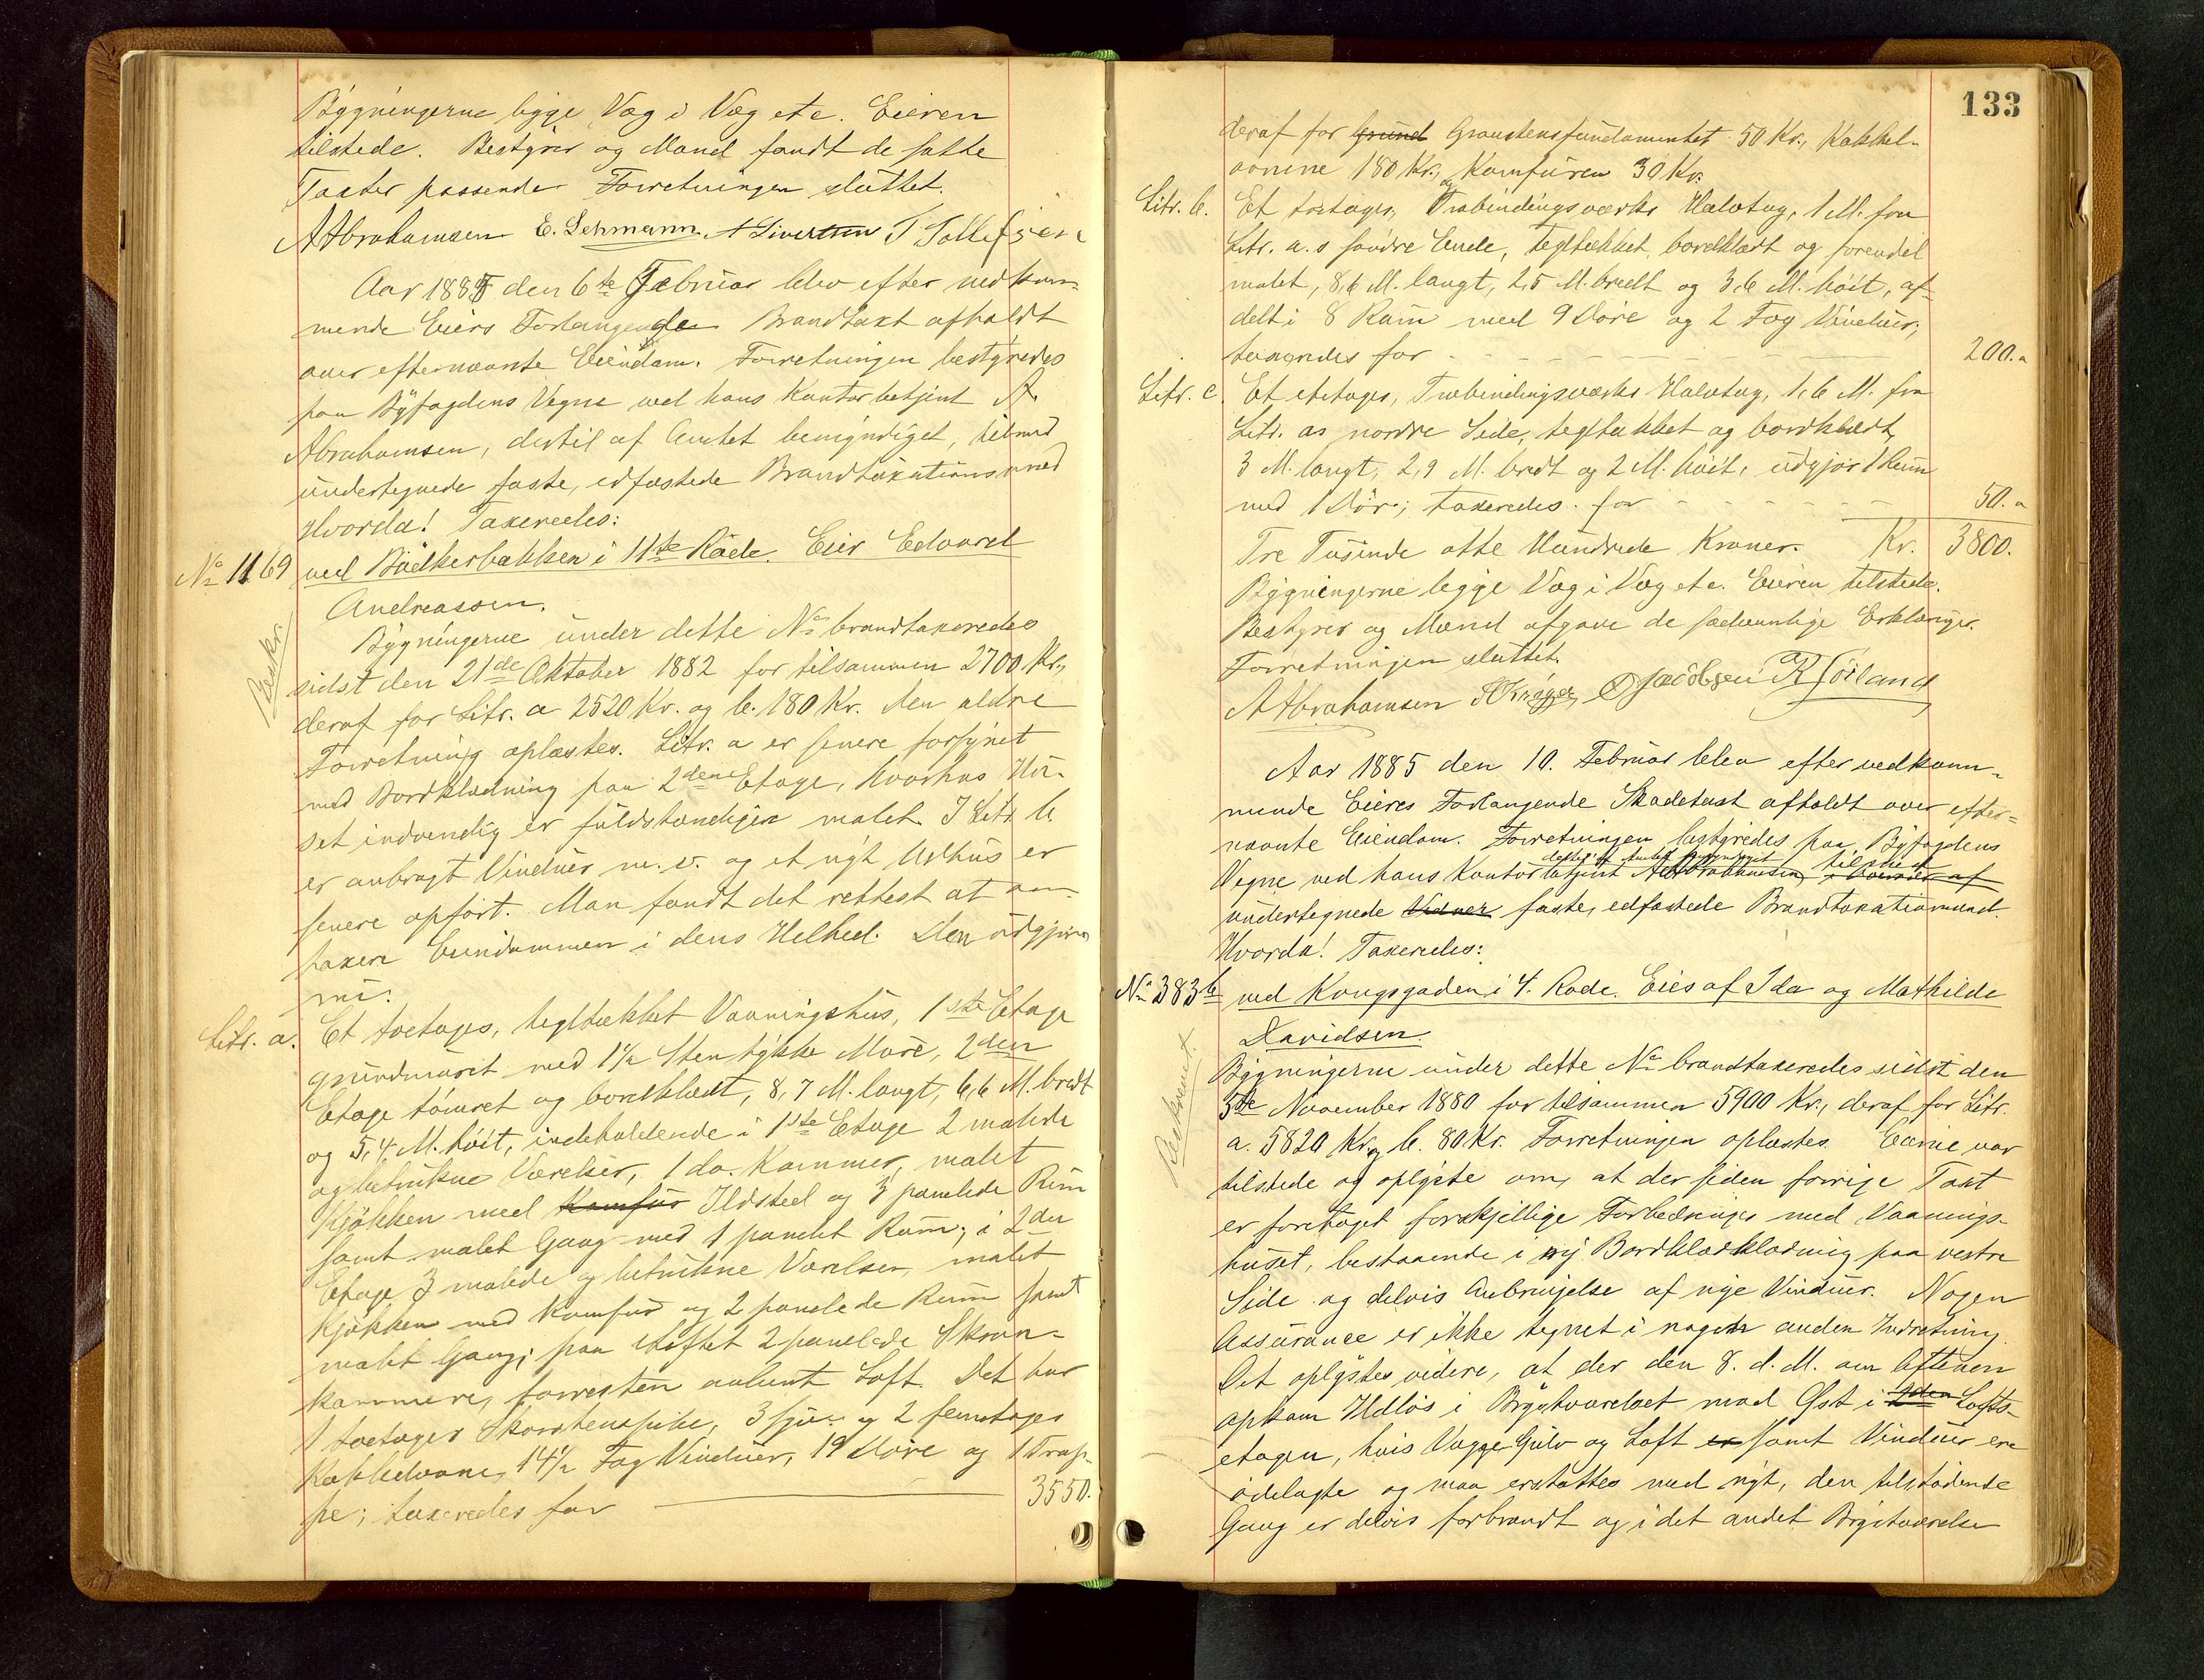 Bÿgningerne ligge Væg i Væg etc. Eieren
tilstede. Bestyrer og Mænd fandt de satte
Taxter passende. Forretningen sluttet.
AAbrahamsen E. Lehmann A Sivertsen T Tollefsen
Aar 1885 den 6te Februar blev efter vedkom-
mende Eiers Forlangende Brandtaxt afholdt
over efternævnte Eiendom. Forretningen bestyredes
paa Byfogdens Vegne ved hans Kontorbetjent A.
Abrahamsen, dertil af Amtet bemyndiget, tilmed
undertegnede faste, edfæstede Brandtaxationsmænd
Hvorda! Taxeredes:
No 1169 ved Bödkerbakken i 11te Rode. Eier Edvard
Andreassen.
Beskr.
Bygningerne under dette No brandtaxeredes
sidst den 21de Oktober 1882 for tilsammen 2700 Kr.,
deraf for Litr. a 2520 Kr. og b. 180 Kr. Den ældre
Forretning oplæstes. Litr. a er senere forsynet
med Bordklædning paa 2den Etage, hvorhos Hu-
set indvendig er fuldstændigere malet. I Litr. b
er anbragt Vinduer m. v. og et nyt Udhus er
senere opfört. Man fandt det rettest at om-
taxere Eiendommen i dens Helhed. Den udgjöres
nu:
Litr. a. Et toetages, tegltækket Vaaningshus, 1ste Etage
grundmuret med 1½ Sten tykke Mure, 2den
Etage tömret og bordklædt, 8,7 M. langt, 6,6 M. bredt
og 5,4 M. höit, indeholdende i 1ste Etage 2 malede
og betrukne Værelser, 1 do. Kammer, malet
Kjökken med Komfur Ildsted og 3 panelede Rum
samt malet Gang med 1 panelet Rum; i 2den
Etage 3 malede og betrukne Værelser, malet
Kjökken med Komfur og 2 panelede Rum samt
malet Gang; paa Loftet 2 panelede Skraa-
kammere, forresten aabent Loft. Det har
1 toetages Skorstenspibe, 3 og 2 femetages
Kakkelovne, 14½ Fag Vinduer, 19 Döre og 1 Trap-
pe; taxeredes for 3550.
133
deraf for Grund Graastensfundamentet 50 Kr., Kakkel-
ovnene 180 Kr., og Komfuren 30 Kr.
Litr. b. Et toetages, Træbindingsværks Halvtag, 1 M. fra
Litr. a.s söndre Ende, tegltækket, bordklædt og forendel
malet, 8,6 M. langt, 2,5 M. bredt og 3,6 M. höit, af-
delt i 8 Rum med 9 Döre og 2 Fag Vinduer;
taxeredes for 200. "
Litr. c. Et etetages, Træbindingsværks Halvtag, 1,6 M. fra
Litr. as nordre Side, tegltækket og bordklædt,
3 M. langt, 2,9 M. bredt og 2 M. höit, udgjör 1 Rum
med 1 Dör; taxeredes for 50. "
Tre Tusinde otte Hundrede Kroner. Kr. 3800.
Bygningerne ligge Væg i Væg etc. Eieren tilstede.
Bestyrer og Mænd afgave de sædvanlige Erklæringer.
Forretningen sluttet.
AAbrahamsen Jacobsen
Aar 1885 den 10. Februar blev efter vedkom-
mende Eieres Forlangende Skadetaxt afholdt over efter-
nævnte Eiendom. Forretningen bestyredes paa Byfogdens
dertil af Amtet bemyndiget tilmed
Vegne ved hans Kontorbetjent A Abrahamsen, i Overvær af
undertegnede Vidner faste, edfæstede Brandtaxationsmænd.
Hvorda! Taxeredes:
No 383b ved Kongsgaden i 4. Rode. Eies af Ida og Mathilde
Davidsen.
Bygningerne under dette No brandtaxeredes sidst den
5te November 1880 for tilsammen 5900 Kr., deraf for Litr.
a. 5820 Kr. og b. 80 Kr. Forretningen oplæstes. Eierne var
tilstede og oplyste om, at der siden forrige Taxt
er foretaget forskjellige Forbedringer med Vaanings-
huset, bestaaende i ny Bordklædklædning paa vestre
Side og delvis Anbringelse af nye Vinduer. Nogen
Assurance er ikke tegnet i nogen anden Indretning.
Det oplystes videre, at der den 8. d. M. om Aftenen
opkom Ildlös i Brystværelset mod Öst i 2den Lofts-
etagen, hvis Vægge Gulv og Loft er samt Vinduer ere
ödelagte og maa erstattes med nyt, den tilstödende
Gang er delvis forbrændt og i det andet Brystværelse